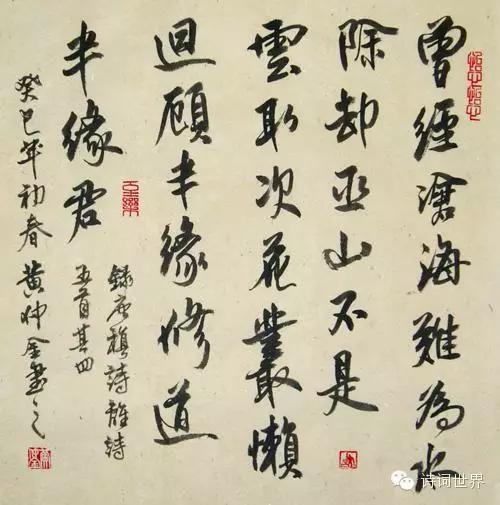 曾經滄海難為水
除却巫山不是
雲取次花叢懶
迴顧半緣修道
半緣君
錄唐稹詩離詩
五首其四
癸巳年初春黄仲金書之
诗词世界